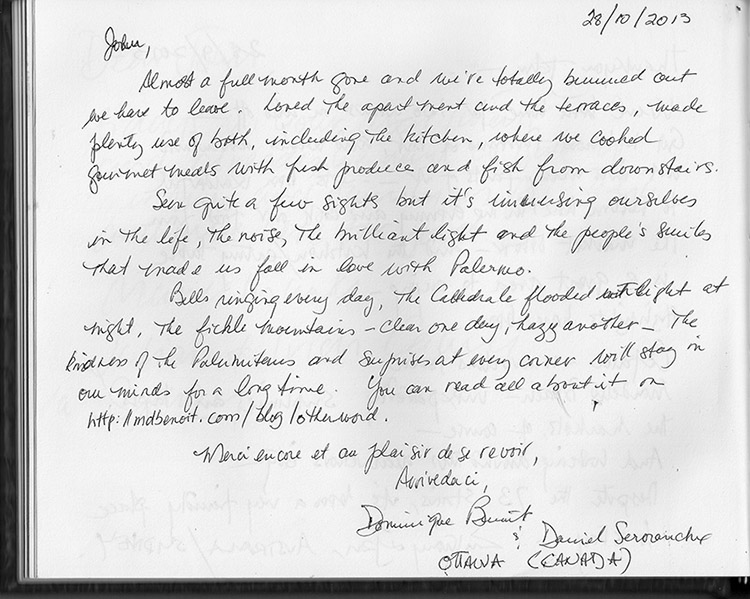 28/10/2013
John,
Almost a full month gone and we're totally bummed out
we have to leave. Loved the apartment and the terraces, made
plenty use of both, including the kitchen, where we cooked
gourmet meals with fresh produce and fish from downstairs.
Seen quite a few sights but it's immersing ourselves
in the life, the noise, the brilliant light and the people's smiles
that made us fall in love with Palermo.
Bells ringing every day, the Cathedrale flooded with light at
night, the fickle mountains – clear one day, hazy another – The
kindness of the Palermitans and surprises at every corner will stay in
our minds for a long time. You can read all about it on
http://mdbenoit.com/blog/otherword.
Merci encore et au plaisir de se revoir,
Arrivedaci,
Dominique Benoit
& Daniel
OTTAWA (CANADA)